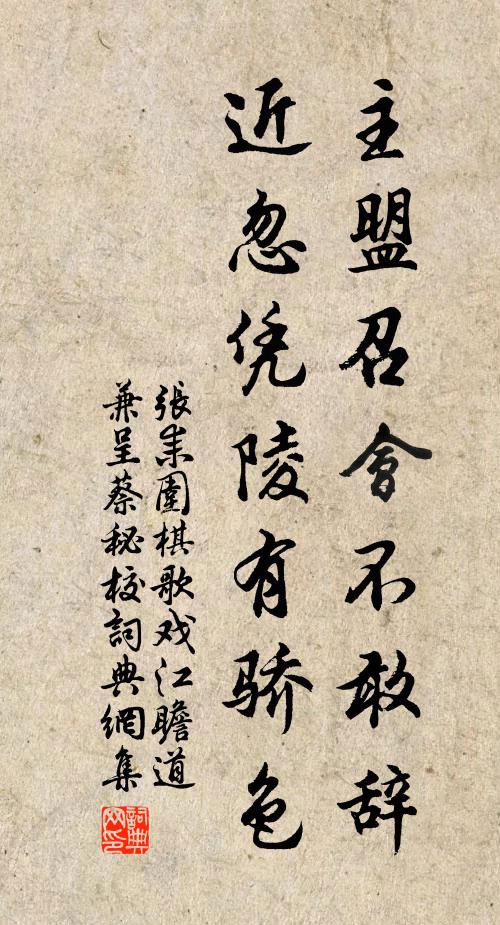 主盟召會不敢辞
近忽凭陵有骄色
張耒圍棋歌戏江瞻道
兼呈蔡秘校詞典網集
詞典网印